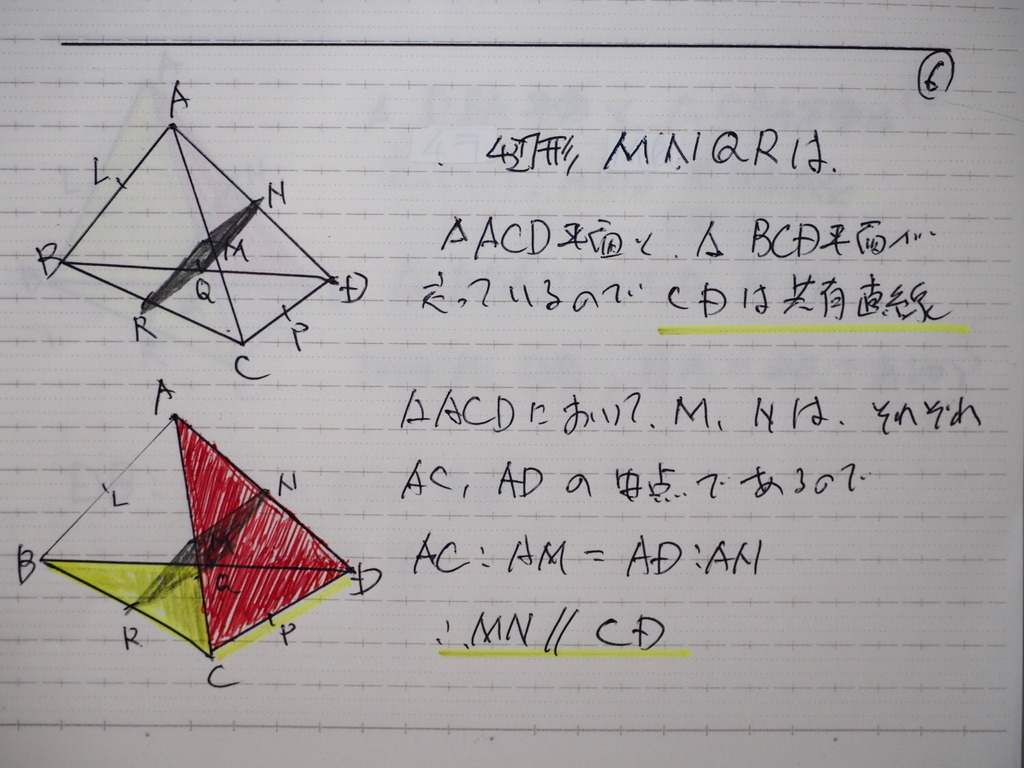 ⑥
A
L
N
B
M
Q
D
R
P
C
∴ 4辺形 MNQRは、
△ACD平面と、△BCD平面が
走っているので CDは共有直線
A
L
N
M
B
Q
D
R
P
C
△ACDにおいて、M、Nは、それぞれ
AC, AD の中点であるので
AC : AM = AD : AN
∴ MN // CD